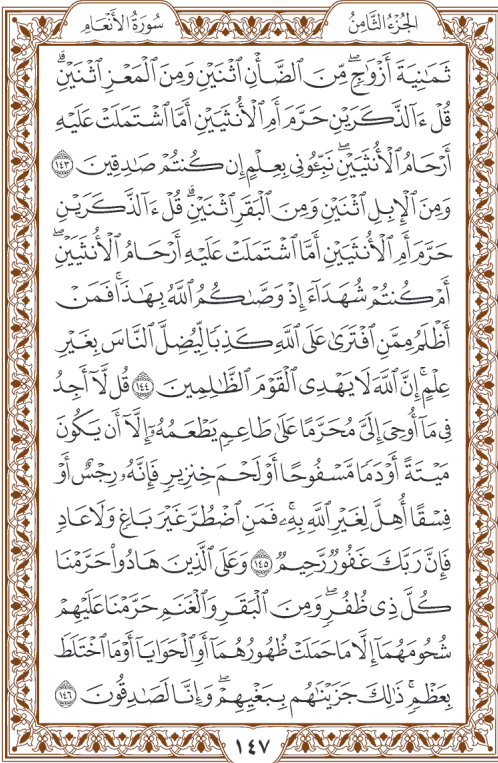 سُورَةُ الأَنْعَامِ
الجُزْءُ الثَّامِنُ
ثَمَٰنِيَةَ أَزْوَٰجٍۖ مِّنَ ٱلضَّأْنِ ٱثْنَيْنِ وَمِنَ ٱلْمَعْزِ ٱثْنَيْنِۗ
قُلْ ءَآلذَّكَرَيْنِ حَرَّمَ أَمِ ٱلْأُنثَيَيْنِ أَمَّا ٱشْتَمَلَتْ عَلَيْهِ
أَرْحَامُ ٱلْأُنثَيَيْنِۖ نَبِّـُٔونِي بِعِلْمٍ إِن كُنتُمْ صَٰدِقِينَ ١٤٣
وَمِنَ ٱلْإِبِلِ ٱثْنَيْنِ وَمِنَ ٱلْبَقَرِ ٱثْنَيْنِۗ قُلْ ءَآلذَّكَرَيْنِ
حَرَّمَ أَمِ ٱلْأُنثَيَيْنِ أَمَّا ٱشْتَمَلَتْ عَلَيْهِ أَرْحَامُ ٱلْأُنثَيَيْنِۖ
أَمْ كُنتُمْ شُهَدَآءَ إِذْ وَصَّىٰكُمُ ٱللَّهُ بِهَٰذَاۚ فَمَنْ
أَظْلَمُ مِمَّنِ ٱفْتَرَىٰ عَلَى ٱللَّهِ كَذِبًا لِّيُضِلَّ ٱلنَّاسَ بِغَيْرِ
عِلْمٍۚ إِنَّ ٱللَّهَ لَا يَهْدِي ٱلْقَوْمَ ٱلظَّٰلِمِينَ ١٤٤ قُل لَّآ أَجِدُ
فِي مَآ أُوحِيَ إِلَيَّ مُحَرَّمًا عَلَىٰ طَاعِمٍ يَطْعَمُهُۥٓ إِلَّآ أَن يَكُونَ
مَيْتَةً أَوْ دَمًا مَّسْفُوحًا أَوْ لَحْمَ خِنزِيرٍ فَإِنَّهُۥ رِجْسٌ أَوْ
فِسْقًا أُهِلَّ لِغَيْرِ ٱللَّهِ بِهِۦۚ فَمَنِ ٱضْطُرَّ غَيْرَ بَاغٍ وَلَا عَادٍ
فَإِنَّ رَبَّكَ غَفُورٌ رَّحِيمٌ ١٤٥ وَعَلَى ٱلَّذِينَ هَادُواْ حَرَّمْنَا
كُلَّ ذِي ظُفُرٍۖ وَمِنَ ٱلْبَقَرِ وَٱلْغَنَمِ حَرَّمْنَا عَلَيْهِمْ
شُحُومَهُمَآ إِلَّا مَا حَمَلَتْ ظُهُورُهُمَآ أَوِ ٱلْحَوَايَآ أَوْ مَا ٱخْتَلَطَ
بِعَظْمٍۚ ذَٰلِكَ جَزَيْنَٰهُم بِبَغْيِهِمْۖ وَإِنَّا لَصَٰدِقُونَ ١٤٦
١٤٧